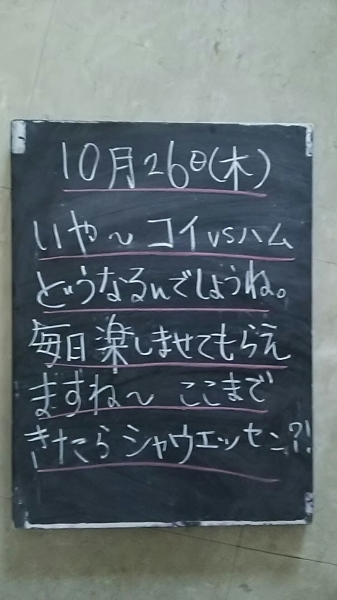 10月26日(木)
いや〜 コイvsハム
どうなるんでしょうね。
毎日楽しませてもらえ
ますね〜 ここまで
きたらシャウエッセン?!